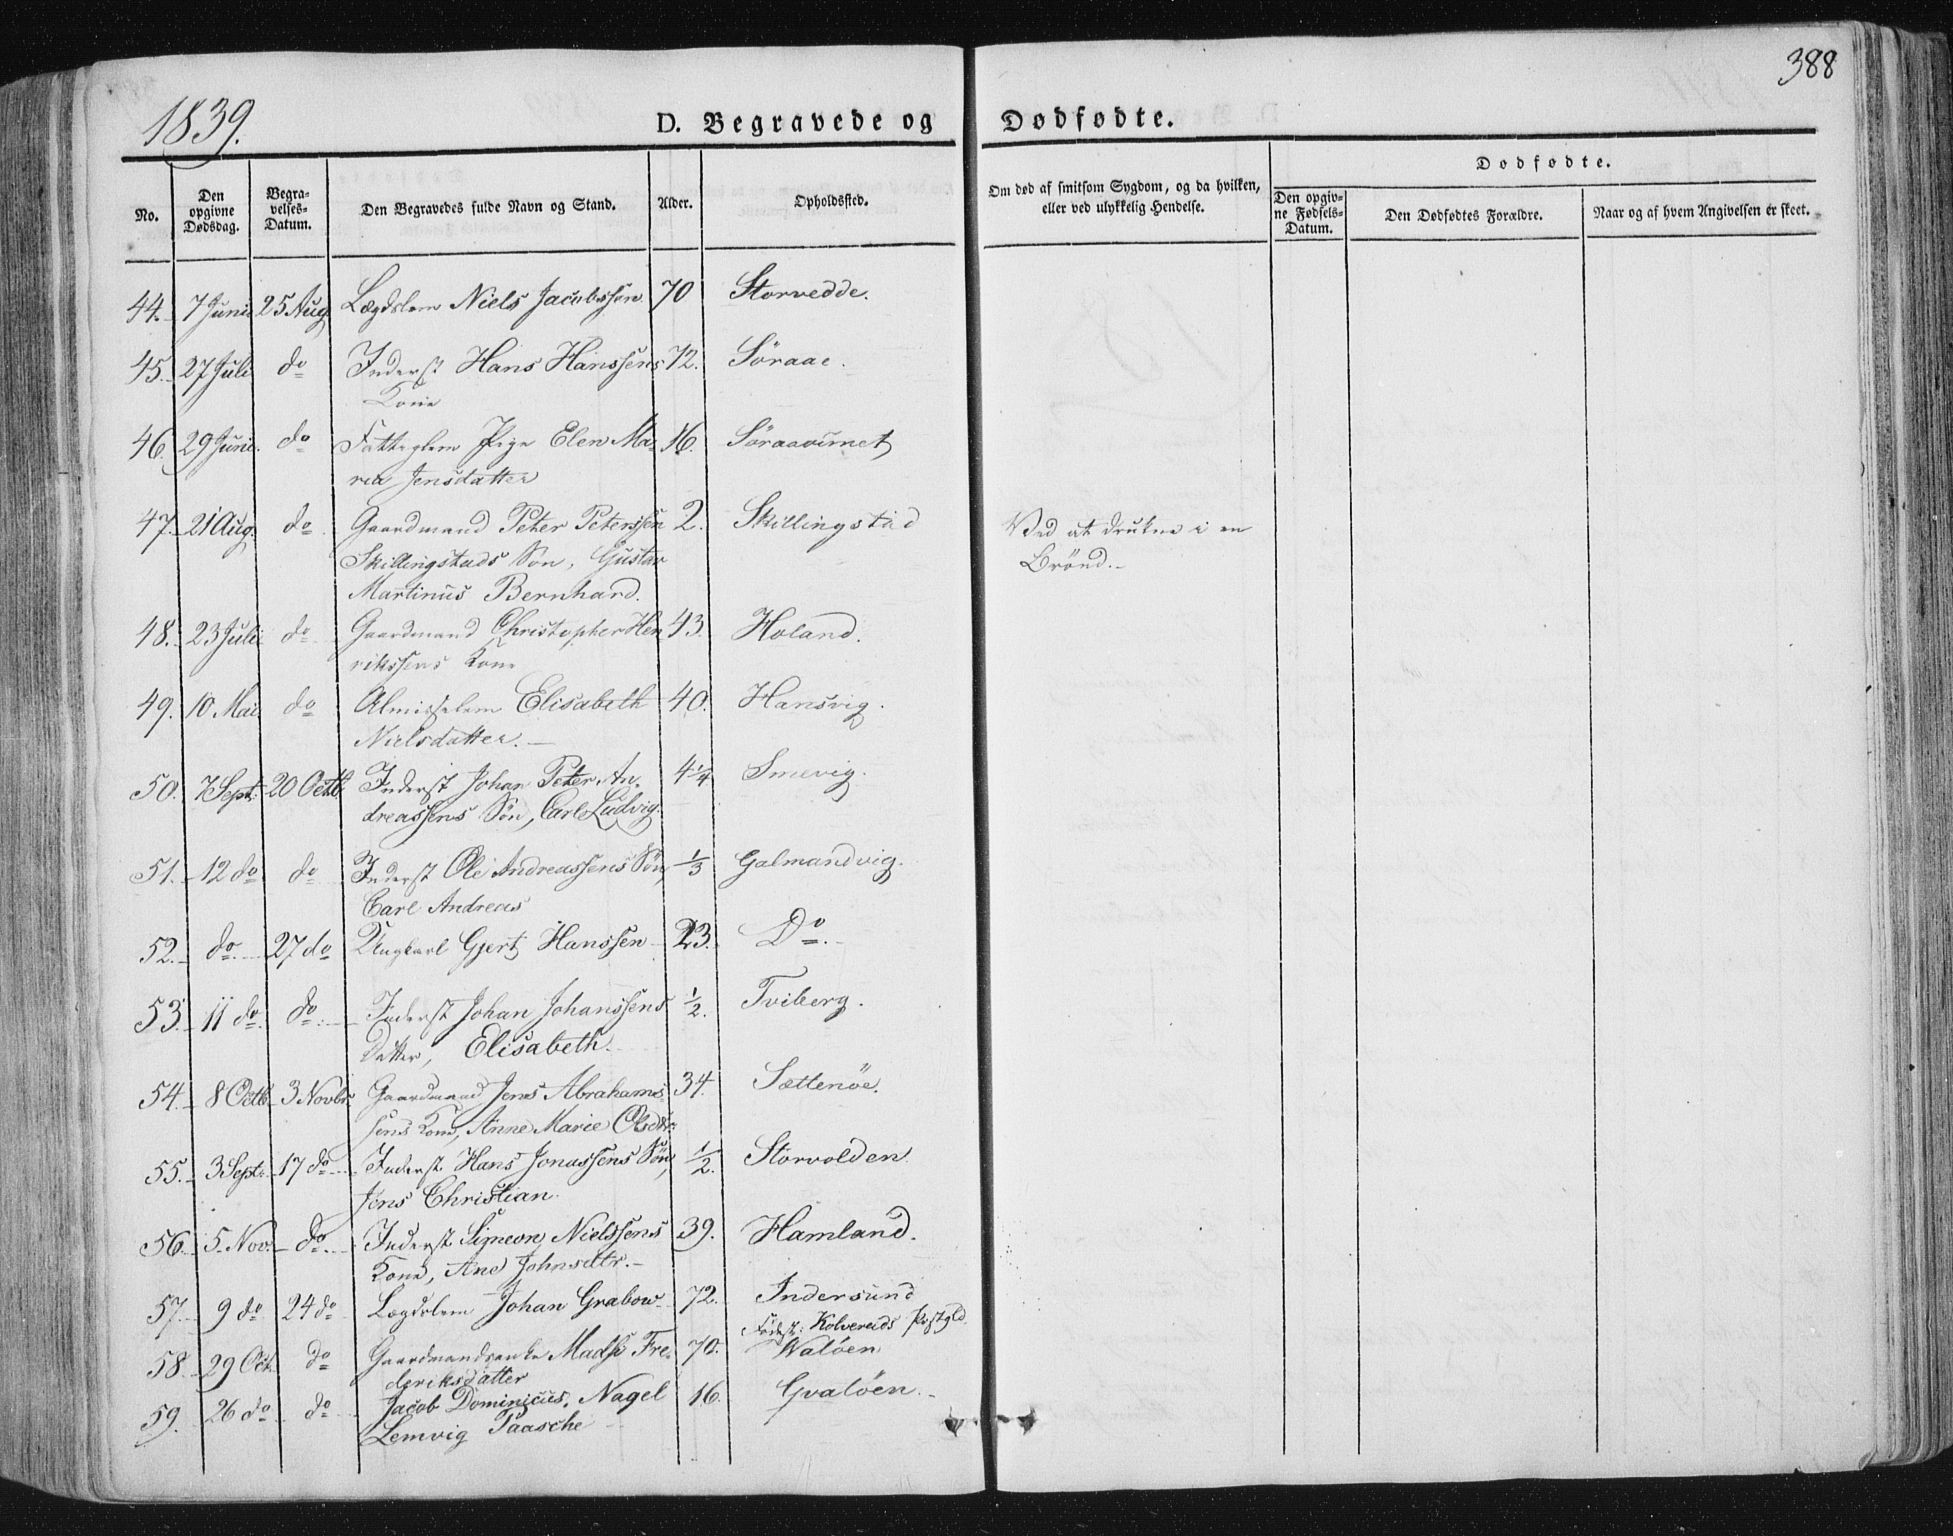 388
1839.
D. Begravede og Dødfødte.
Dødfødte.
No.
Den opgivne Dødsdag.
Begravelses-Datum.
Den Begravedes fulde Navn og Stand.
Alder.
Opholdssted.
Om død af smitsom Sygdom, og da hvilken, eller ved ulykkelig Hendelse.
Den opgivne Fødsels-Datum.
Den Dødfødtes Forældre.
Naar og af hvem Angivelsen er skeet.
44. 7 Juni 25 Aug Lægdslem Niels Jacobssen 70 Storvedde.
45. 27 Juli do Inderst Hans Hanssens 72. Søraae.
Kone
46. 29 Juni. do Fatteglem Pige Elen Ma- 16. Søraavimet
ria Jensdatter
47. 21 Aug. do Gaardmand Peter Peterssen 2. Skillingstad Ved at drukne i en
Skillingstads Søn, Gustav Brønd.
Martinus Bernhard.
48. 23 Juli do Gaardmand Christopher Hen 43. Holand.
rikssens Kone
49. 10 Mai do Almisselem Elisabeth 40. Hansvig.
Nielsdatter.
50. 7 Sept. 20 Octb Inderst Johan Peter An- 4 1/4 Smevig.
dreassens Søn, Carl Ludvig.
51. 12 do do Inderst Ole Andreassens Søn, 1/3 Galmandvig.
Carl Andreas
52. do. 27 do Ungkarl Gjert Hanssen 23. Do.
53. 11 do. do. Inderst Johan Johanssens 1/2. Tviberg.
Datter, Elisabeth.
54. 8 Octb 3 Novbr. Gaardmand Jens Abrahams- 34. Sættenøe.
sens Kone, Anne Marie Olsdtr:
55. 3 Sept. 17 do Inderst Hans Jonassens Søn, 1/2. Storvolden.
Jens Christian.
56. 5. Nov. do. Inderst Simeon Nielssens 39. Hamland.
Kone, Ane Johnsdtr.
57. 9 do 24 do Lægdslem Johan Grabow 72. Indersund
Fødest: Kolvereids Præstgld
58. 29 Oct. do Gaardmandsenke Madsi Fre- 70. Waløen
deriksdatter
59. 26 do do Jacob Dominicus, Nagel 16. Gvaløen.
Lemvig Paasche